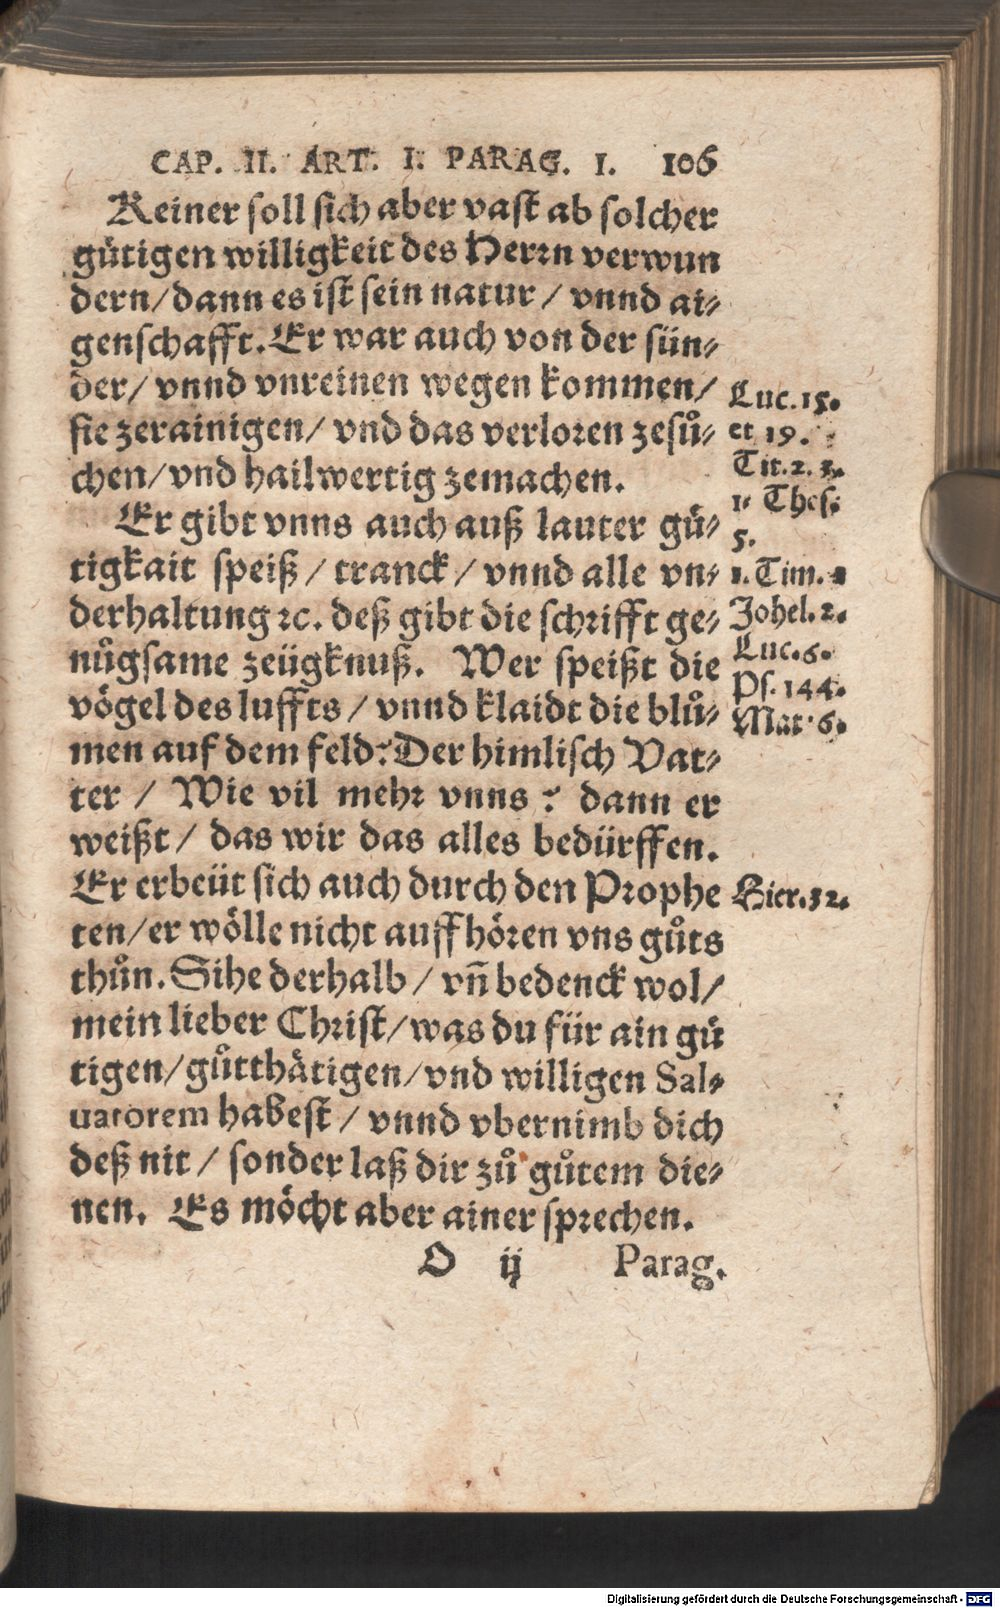 CAP. II. ART. I. PARAG. I. 106
Keiner soll sich aber vast ab solcher
gütigen willigkeit des Herrn verwun
dern/dann es ist sein natur / vnnd ai-
genschafft. Er war auch von der sün-
der/ vnnd vnreinen wegen kommen/
sie zerainigen/ vnd das verloren zesů-
chen/vnd hailwertig zemachen.
Er gibt vnns auch auß lauter gü-
tigkait speiß / tranck / vnnd alle vn-
derhaltung ꝛc. deß gibt die schrifft ge-
nůgsame zeügknuß. Wer speißt die
vögel des luffts / vnnd klaidt die blů-
men auf dem feld? Der himlisch Vat-
ter / Wie vil mehr vnns ? dann er
weißt / das wir das alles bedürffen.
Er erbeüt sich auch durch den Prophe
ten/er wölle nicht auffhören vns gůts
thůn. Sihe derhalb / vñ bedenck wol/
mein lieber Christ/was du für ain gü
tigen/gůtthätigen/vnd willigen Sal-
uatorem habest / vnnd vbernimb dich
deß nit / sonder laß dir zů gůtem die-
nen. Es möcht aber ainer sprechen.
O ij Parag.
Luc. 15.
et 19.
Tit. 2. 3.
1. Thes.
5.
1. Tim.
Johel. 2.
Luc. 6.
Ps. 144.
Mat. 6.
Hier. 32.
Digitalisierung gefördert durch die Deutsche Forschungsgemeinschaft - DFG